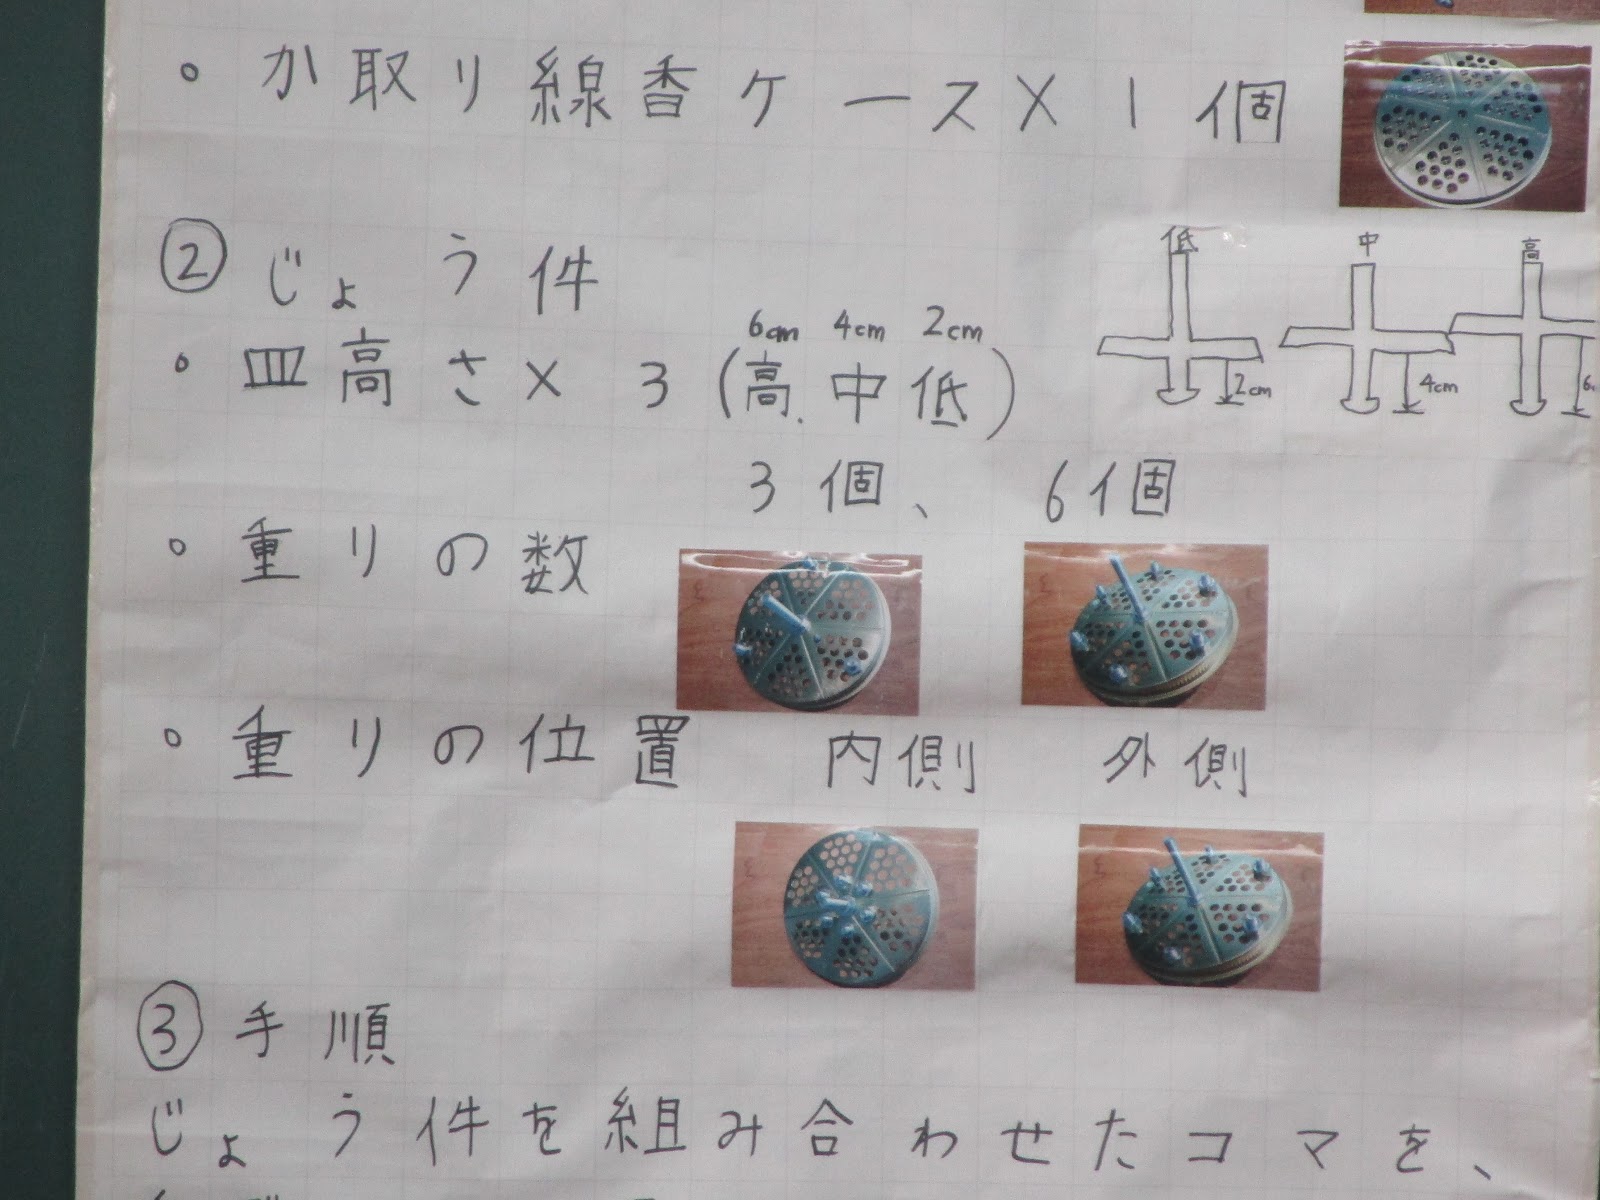 。か取り線香ケースX1個
② じょう件
低 中 高
6cm 4cm 2cm
。皿高さ×3(高.中低)
2cm 4cm
3個、 6個
。重りの数
。重りの位置 内側 外側
③ 手順
じょう件を組み合わせたコマを、